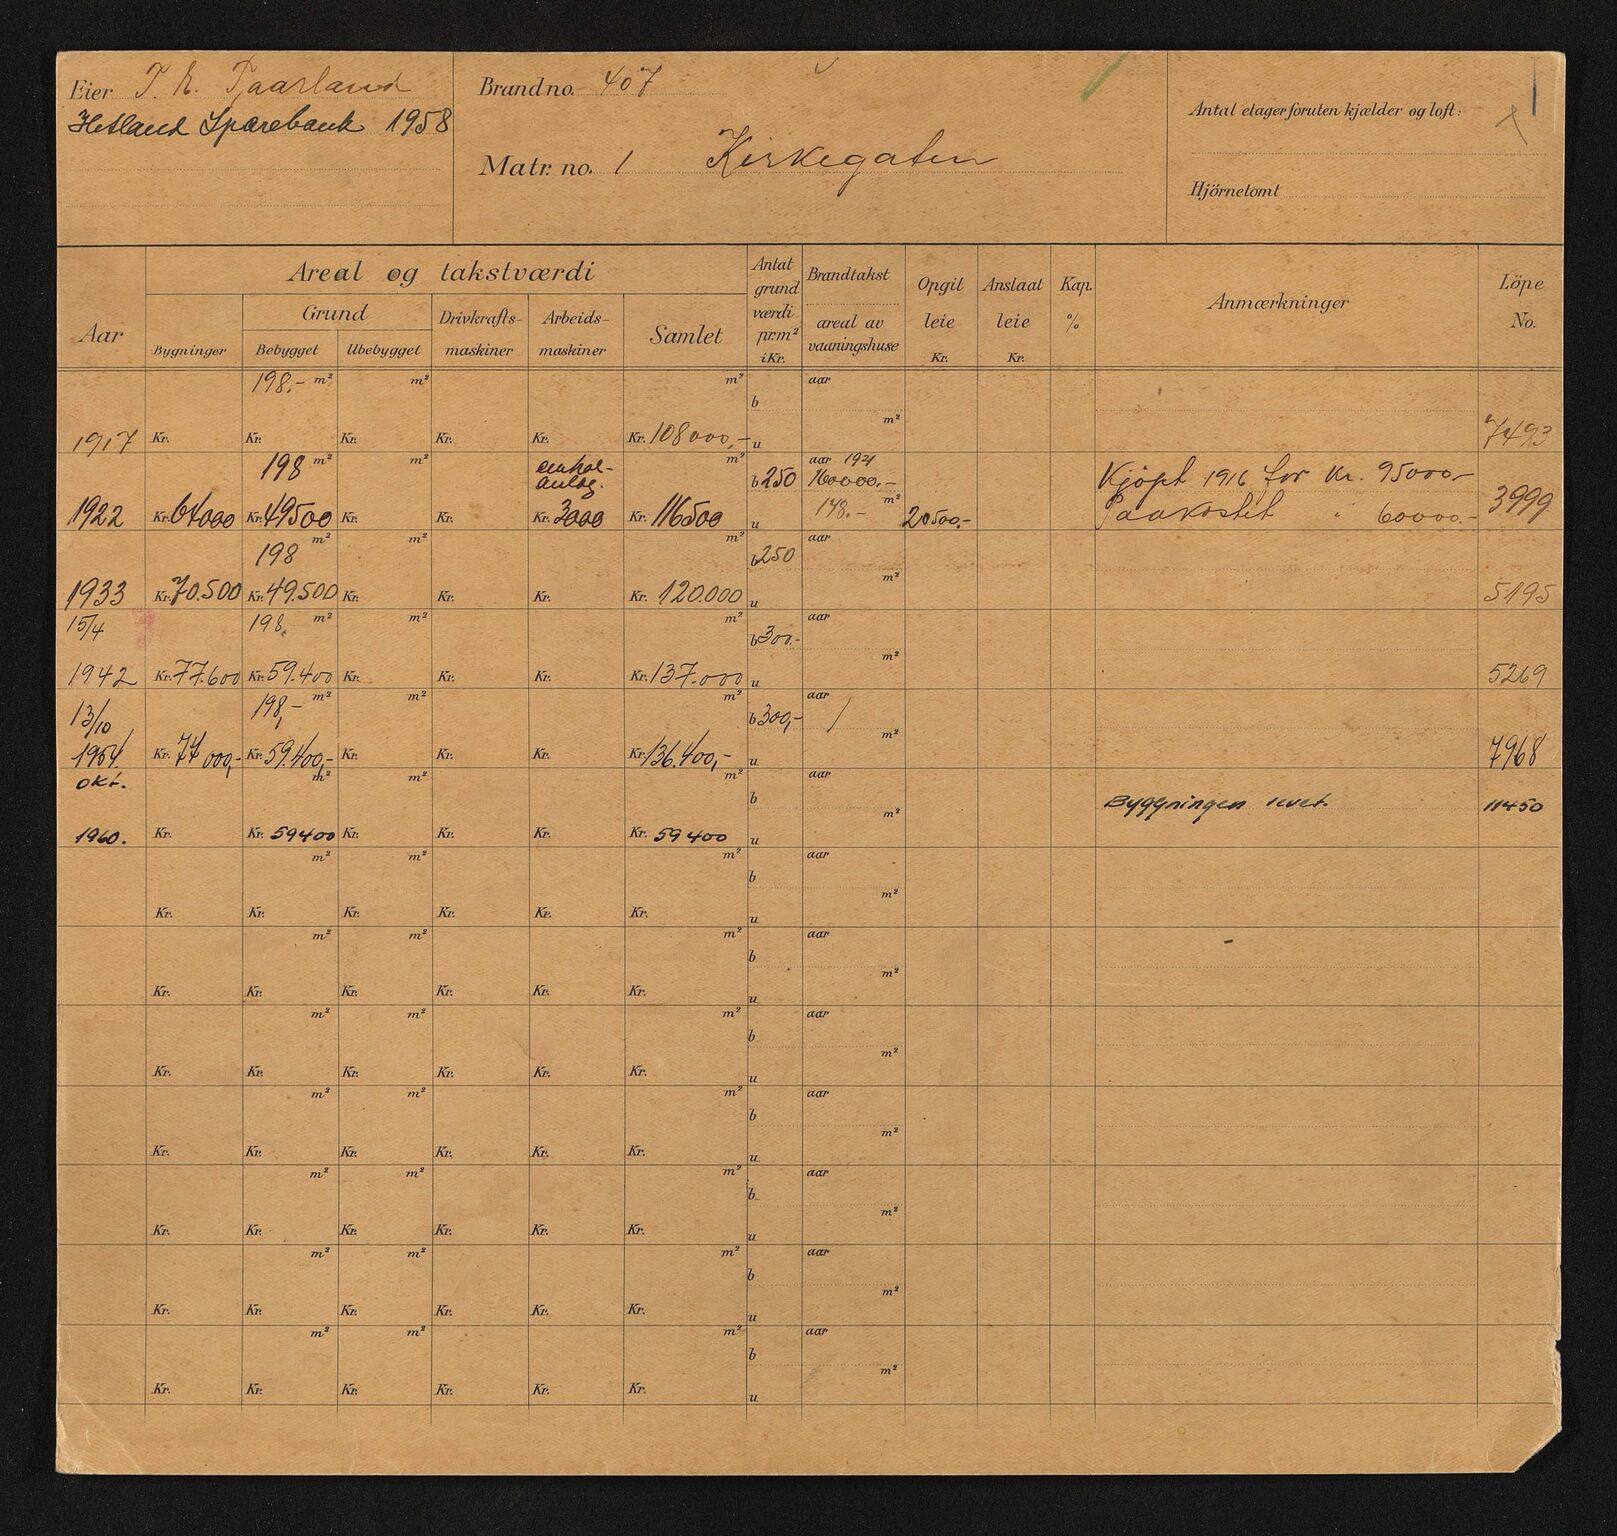 Eier T. E. Tjaarland
Hetland Sparebank 1958
Brand no. 407
Matr. no. 1 Kirkegaten
Antal etager foruten kjælder og loft:
Hjörnetomt
Aar
Areal og takstværdi
Bygninger
Grund
Bebygget Ubebygget
Drivkrafts-
maskiner
Arbeids-
maskiner
Samlet
Antat
grund
værdi
pr. m²
i Kr.
Brandtakst
areal av
vaaningshuse
Opgit
leie
Kr.
Anslaat
leie
Kr.
Kap.
%
Anmærkninger
Löpe
No.
198,- m² m² m² aar
b
m²
1917 Kr. Kr. Kr. Kr. Kr. Kr. 108000,- u 7493
198 m² m² m² b 250 aar 1921
160000.-
148.- m²
Kjöpt 1916 for Kr. 95000,-
1922 Kr. 64000 Kr. 49500 Kr. Kr. Kr. 3000 Kr. 116500 u 20500.- Paakostet " 60000.- 3999
198 m² m² m² b 250 aar
m²
1933 Kr. 70.500 Kr. 49.500 Kr. Kr. Kr. Kr. 120.000 u 5195
15/4 198 m² m² m² b 300.- aar
m²
1942 Kr. 77.600 Kr. 59.400 Kr. Kr. Kr. Kr. 137.000 u 5269
13/10 198,- m² m² m² b 300,- aar /
m²
1954 Kr. 77 000,- Kr. 59.400,- Kr. Kr. Kr. Kr. 136.400,- u 7968
okt. m² m² m² b aar
m² Byggningen revet. 11450
1960. Kr. Kr. 59400 Kr. Kr. Kr. Kr. 59400 u
m² m² m² aar
b
m²
Kr. Kr. Kr. Kr. Kr. Kr. u
m² m² m² aar
b
m²
Kr. Kr. Kr. Kr. Kr. Kr. u
m² m² m² aar
b
m²
Kr. Kr. Kr. Kr. Kr. Kr. u
m² m² m² aar
b
m²
Kr. Kr. Kr. Kr. Kr. Kr. u
m² m² m² aar
b
m²
Kr. Kr. Kr. Kr. Kr. Kr. u
m² m² m² aar
b
m²
Kr. Kr. Kr. Kr. Kr. Kr. u
m² m² m² aar
b
m²
Kr. Kr. Kr. Kr. Kr. Kr. u